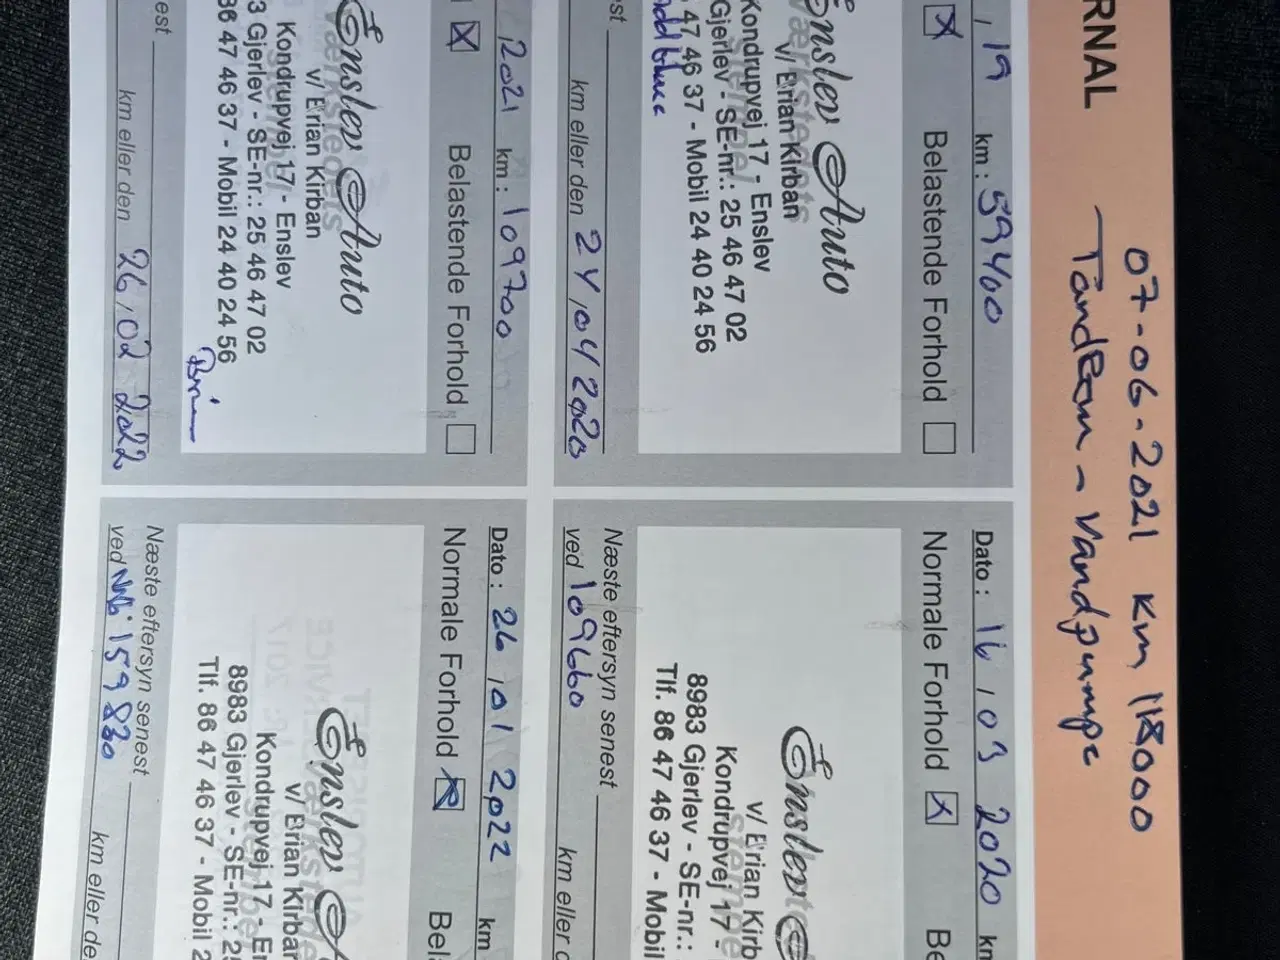 07-06-2021 Km 118000
RNAL — TandRem - Vandpumpe
, 19 km : 59400
Belastende Forhold
Enslev Auto
v/ Brian Kirban
Kondrupvej 17 - Enslev
Gjerlev - SE-nr.: 25 46 47 02
47 46 37 - Mobil 24 40 24 56
Addblue
est
km eller den 24,04 2020
Dato : 16,03 2020 km
Normale Forhold Be
Enslev
v/ Brian Kirb
Kondrupvej 17 -
8983 Gjerlev - SE-nr.:
Tlf. 86 47 46 37 - Mobil
Næste eftersyn senest
ved 109660 km eller d
, 2021 km : 109700
Belastende Forhold
Enslev Auto
v/ Brian Kirban
Kondrupvej 17 - Enslev
3 Gjerlev - SE-nr.: 25 46 47 02
86 47 46 37 - Mobil 24 40 24 56
est
km eller den 26,02 2022
Dato : 26,01 2022 km
Normale Forhold Bel
Enslev A
v/ Brian Kirban
Kondrupvej 17 - En
8983 Gjerlev - SE-nr.: 25
Tlf. 86 47 46 37 - Mobil 2
Næste eftersyn senest
ved 159830 km eller de